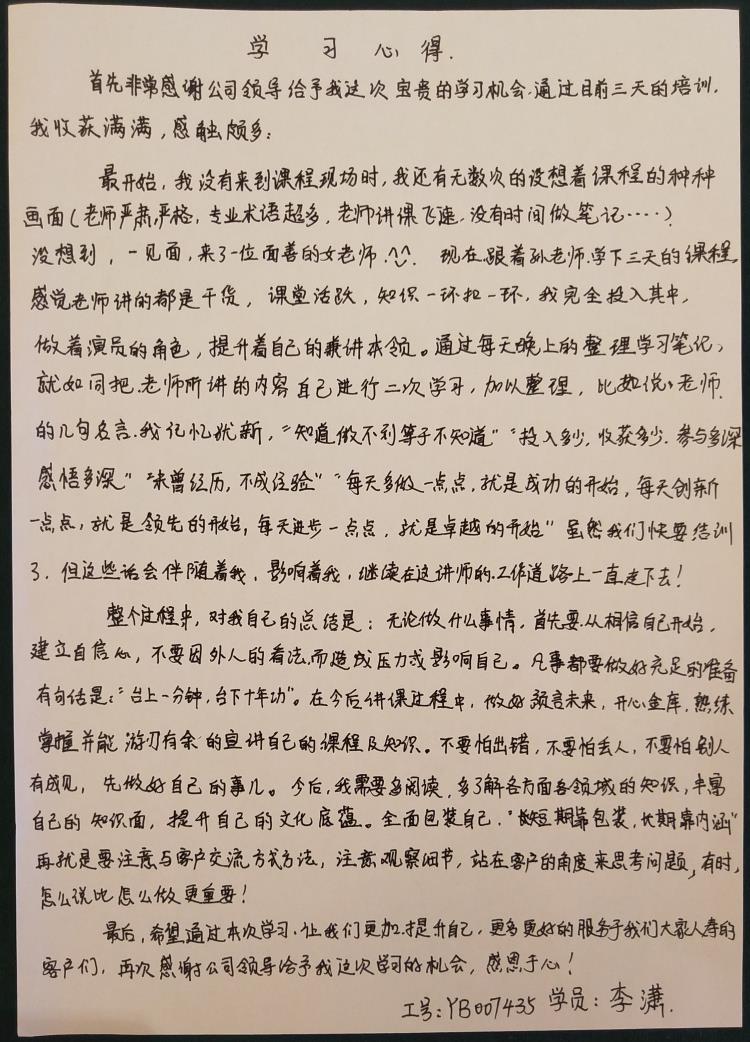 学习心得.
首先非常感谢公司领导给予我这次宝贵的学习机会.通过目前三天的培训.
我收获满满,感触颇多:
最开始,我没有来到课程现场时,我还有无数次的设想着课程的种种
画面(老师严肃,严格,专业术语超多,老师讲课飞速,没有时间做笔记·····)
没想到,一见面,来了一位面善的女老师.^^. 现在跟着孙老师学下三天的课程,
感觉老师讲的都是干货,课堂活跃,知识一环扣一环,我完全投入其中,
做着演员的角色,提升着自己的兼讲本领。通过每天晚上的整理学习笔记,
就如同把老师所讲的内容自己进行二次学习,加以整理,比如说:老师
的几句名言.我记忆犹新,“知道做不到等于不知道”“投入多少,收获多少.参与多深
感悟多深”“未曾经历,不成经验”“每天多做一点点,就是成功的开始,每天创新
一点点,就是领先的开始,每天进步一点点,就是卓越的开始”虽然我们快要结训
了.但这些话会伴随着我,影响着我,继续在这讲师的工作道路上一直走下去!
整个过程中,对我自己的总结是:无论做什么事情,首先要从相信自己开始,
建立自信心,不要因外人的看法而造成压力或影响自己。凡事都要做好充足的准备
有句话是:“台上一分钟,台下十年功”。在今后讲课过程中,做好预言未来,开心金库,熟练
掌握并能游刃有余的宣讲自己的课程及知识。不要怕出错,不要怕丢人,不要怕别人
有成见,先做好自己的事儿。今后,我需要多阅读,多了解各方面各领域的知识,丰富
自己的知识面,提升自己的文化底蕴。全面包装自己.“短期靠包装,长期靠内涵”
再就是要注意与客户交流方式方法,注意观察细节,站在客户的角度来思考问题,有时,
怎么说比怎么做更重要!
最后,希望通过本次学习.让我们更加提升自己,更多更好的服务于我们大家人寿的
客户们,再次感谢公司领导给予我这次学习的机会,感恩于心!
工号:YB007435 学员:李潇.